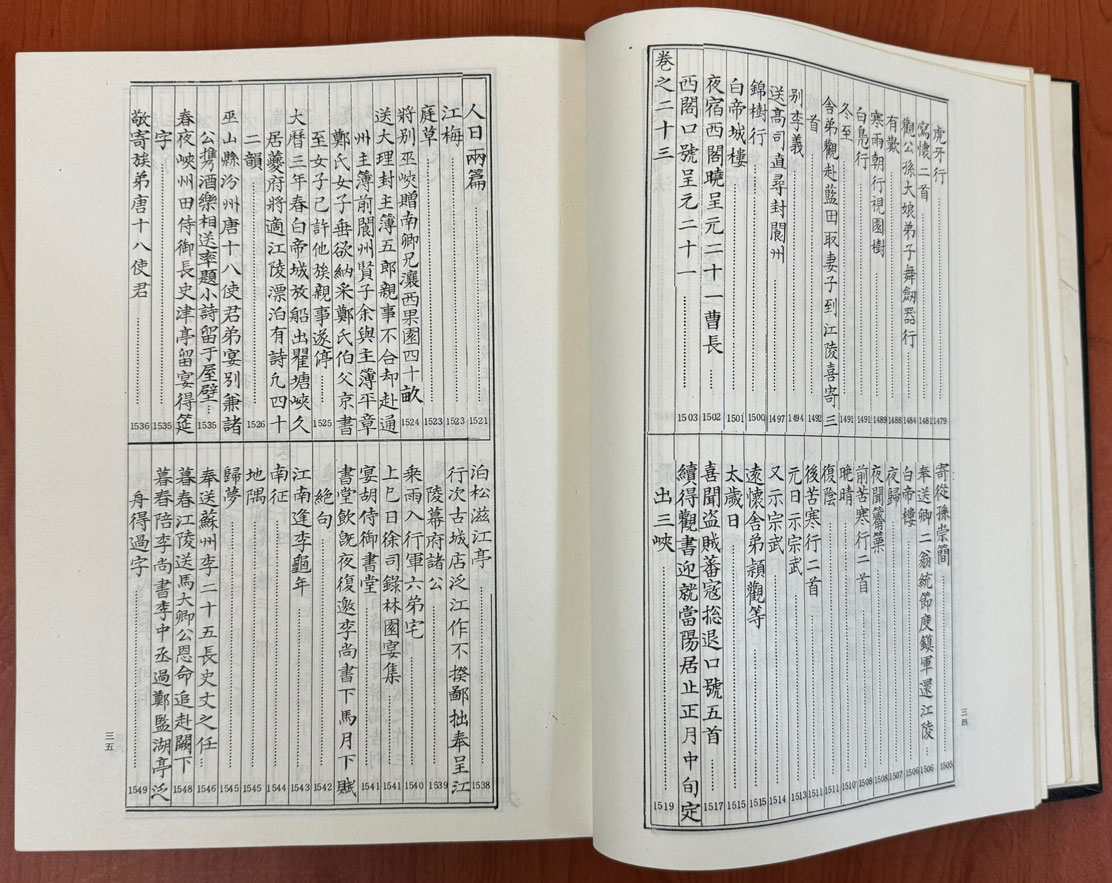 虎牙行 1479
寫懷二首 1481
觀公孫大娘弟子舞劒器行 1484
有歎 1488
寒雨朝行視園樹 1489
白鳧行 1491
冬至 1491
舍弟觀赴藍田取妻子到江陵喜寄三
首 1492
別李義 1494
送高司直尋封閬州 1497
錦樹行 1500
白帝城樓 1501
夜宿西閣曉呈元二十一曹長 1502
西閣口號呈元二十一 1503
卷之二十三
寄從孫崇簡 1505
奉送卿二翁統節度鎮軍還江陵 1506
白帝樓 1506
夜歸 1507
夜聞觱篥 1508
前苦寒行二首 1508
晚晴 1510
復陰 1511
後苦寒行二首 1511
元日示宗武 1513
又示宗武 1514
遠懷舍弟潁觀等 1515
太歲日 1515
喜聞盜賊蕃寇捴退口號五首 1517
續得觀書迎就當陽居止正月中旬定
出三峽 1519
三四
人日兩篇 1521
江梅 1523
庭草 1523
將別巫峽贈南卿兄瀼西果園四十畝 1524
送大理封主簿五郎親事不合却赴通
州主簿前閬州賢子余與主簿平章
鄭氏女子垂欲納采鄭氏伯父京書
至女子已許他族親事遂停 1525
大曆三年春白帝城放船出瞿塘峽久
居夔府將適江陵漂泊有詩凡四十
二韻 1526
巫山縣汾州唐十八使君弟宴別兼諸
公攜酒樂相送率題小詩留于屋壁 1535
春夜峽州田侍御長史津亭留宴得筵
字 1535
敬寄族弟唐十八使君 1536
泊松滋江亭 1538
行次古城店泛江作不揆鄙拙奉呈江
陵幕府諸公 1539
乘雨入行軍六弟宅 1540
上巳日徐司錄林園宴集 1541
宴胡侍御書堂 1541
書堂飲旣夜復邀李尚書下馬月下賦
絕句 1542
江南逢李龜年 1543
南征 1544
地隅 1545
歸夢 1545
奉送蘇州李二十五長史丈之任 1546
暮春江陵送馬大卿公恩命追赴闕下 1548
暮春陪李尚書李中丞過鄭監湖亭泛
舟得過字 1549
三五